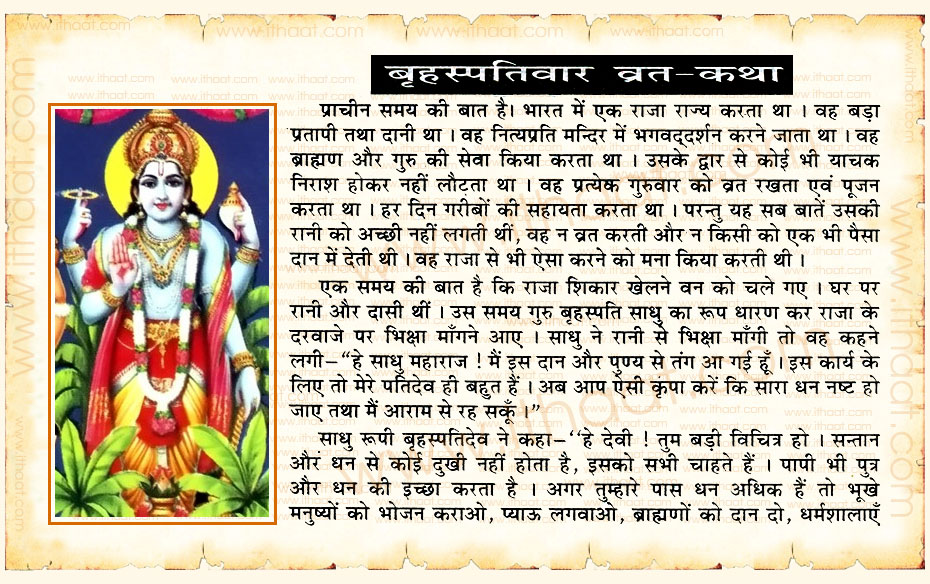 बृहस्पतिवार व्रत-कथा
प्राचीन समय की बात है। भारत में एक राजा राज्य करता था । वह बड़ा
प्रतापी तथा दानी था । वह नित्यप्रति मन्दिर में भगवद्‌दर्शन करने जाता था । वह
ब्राह्मण और गुरु की सेवा किया करता था । उसके द्वार से कोई भी याचक
निराश होकर नहीं लौटता था । वह प्रत्येक गुरुवार को व्रत रखता एवं पूजन
करता था । हर दिन गरीबों की सहायता करता था । परन्तु यह सब बातें उसकी
रानी को अच्छी नहीं लगती थीं, वह न व्रत करती और न किसी को एक भी पैसा
दान में देती थी । वह राजा से भी ऐसा करने को मना किया करती थी ।
एक समय की बात है कि राजा शिकार खेलने वन को चले गए । घर पर
रानी और दासी थीं । उस समय गुरु बृहस्पति साधु का रूप धारण कर राजा के
दरवाजे पर भिक्षा माँगने आए । साधु ने रानी से भिक्षा माँगी तो वह कहने
लगी–“हे साधु महाराज ! मैं इस दान और पुण्य से तंग आ गई हूँ । इस कार्य के
लिए तो मेरे पतिदेव ही बहुत हैं । अब आप ऐसी कृपा करें कि सारा धन नष्ट हो
जाए तथा मैं आराम से रह सकूँ ।”
साधु रूपी बृहस्पतिदेव ने कहा–‘‘हे देवी ! तुम बड़ी विचित्र हो । सन्तान
और धन से कोई दुखी नहीं होता है, इसको सभी चाहते हैं । पापी भी पुत्र
और धन की इच्छा करता है । अगर तुम्हारे पास धन अधिक हैं तो भूखे
मनुष्यों को भोजन कराओ, प्याऊ लगवाओ, ब्राह्मणों को दान दो, धर्मशालाएँ
www.ithaat.com